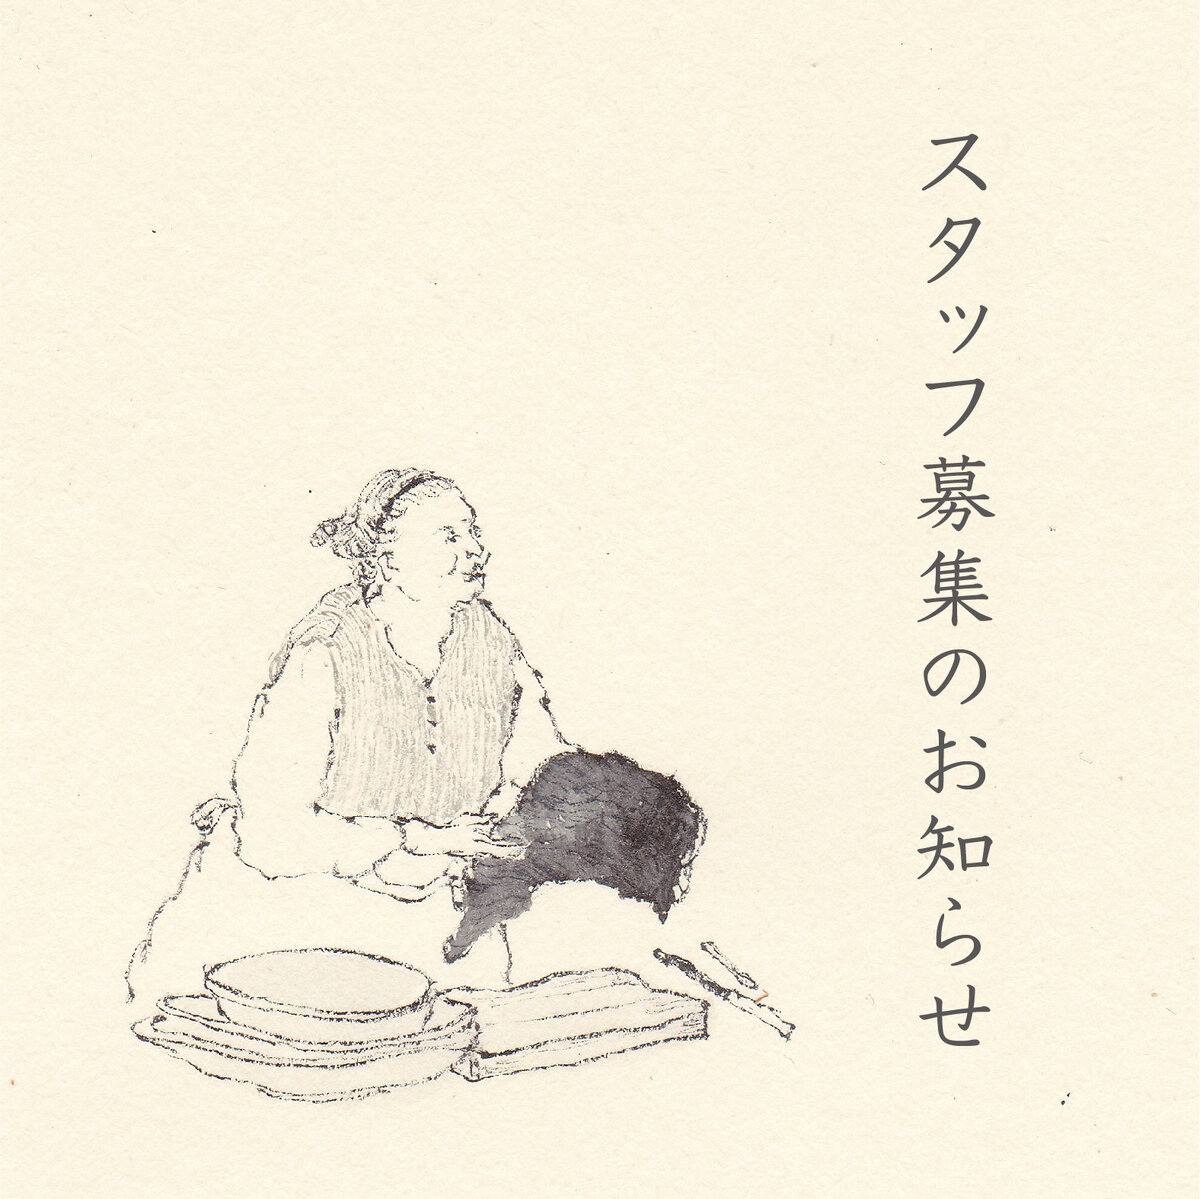 スタッフ募集のお知らせ